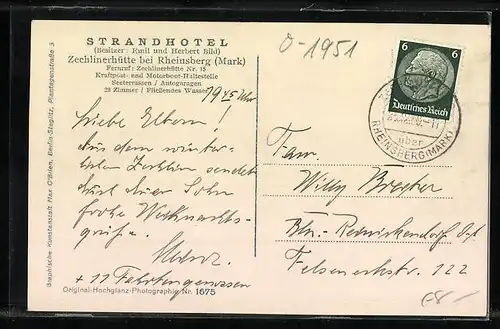 STRANDHOTEL
(Besitzer: Emil und Herbert Bild)
Zechlinerhütte bei Rheinsberg (Mark)
Fernruf: Zechlinerhütte Nr. 15
Kraftpost- und Motorboot-Haltestelle
Seeterrassen / Autogaragen
28 Zimmer / Fließendes Wasser
Liebe Eltern!
Aus dem winter-
lichen Zechlin sendet
Euch Euer Sohn
frohe Weihnachts-
grüße.
Heinz
+ 11 Fahrtengenossen
Original-Hochglanz-Photographie Nr. 1675
Graphische Kunstanstalt Max O'Brien, Berlin-Steglitz, Plantagenstraße 3.
0-1951
6 6
Deutsches Reich
über
RHEINSBERG (MARK)
Fam.
Willy
Bln.- Reinickendorf Ost
122
€8.-